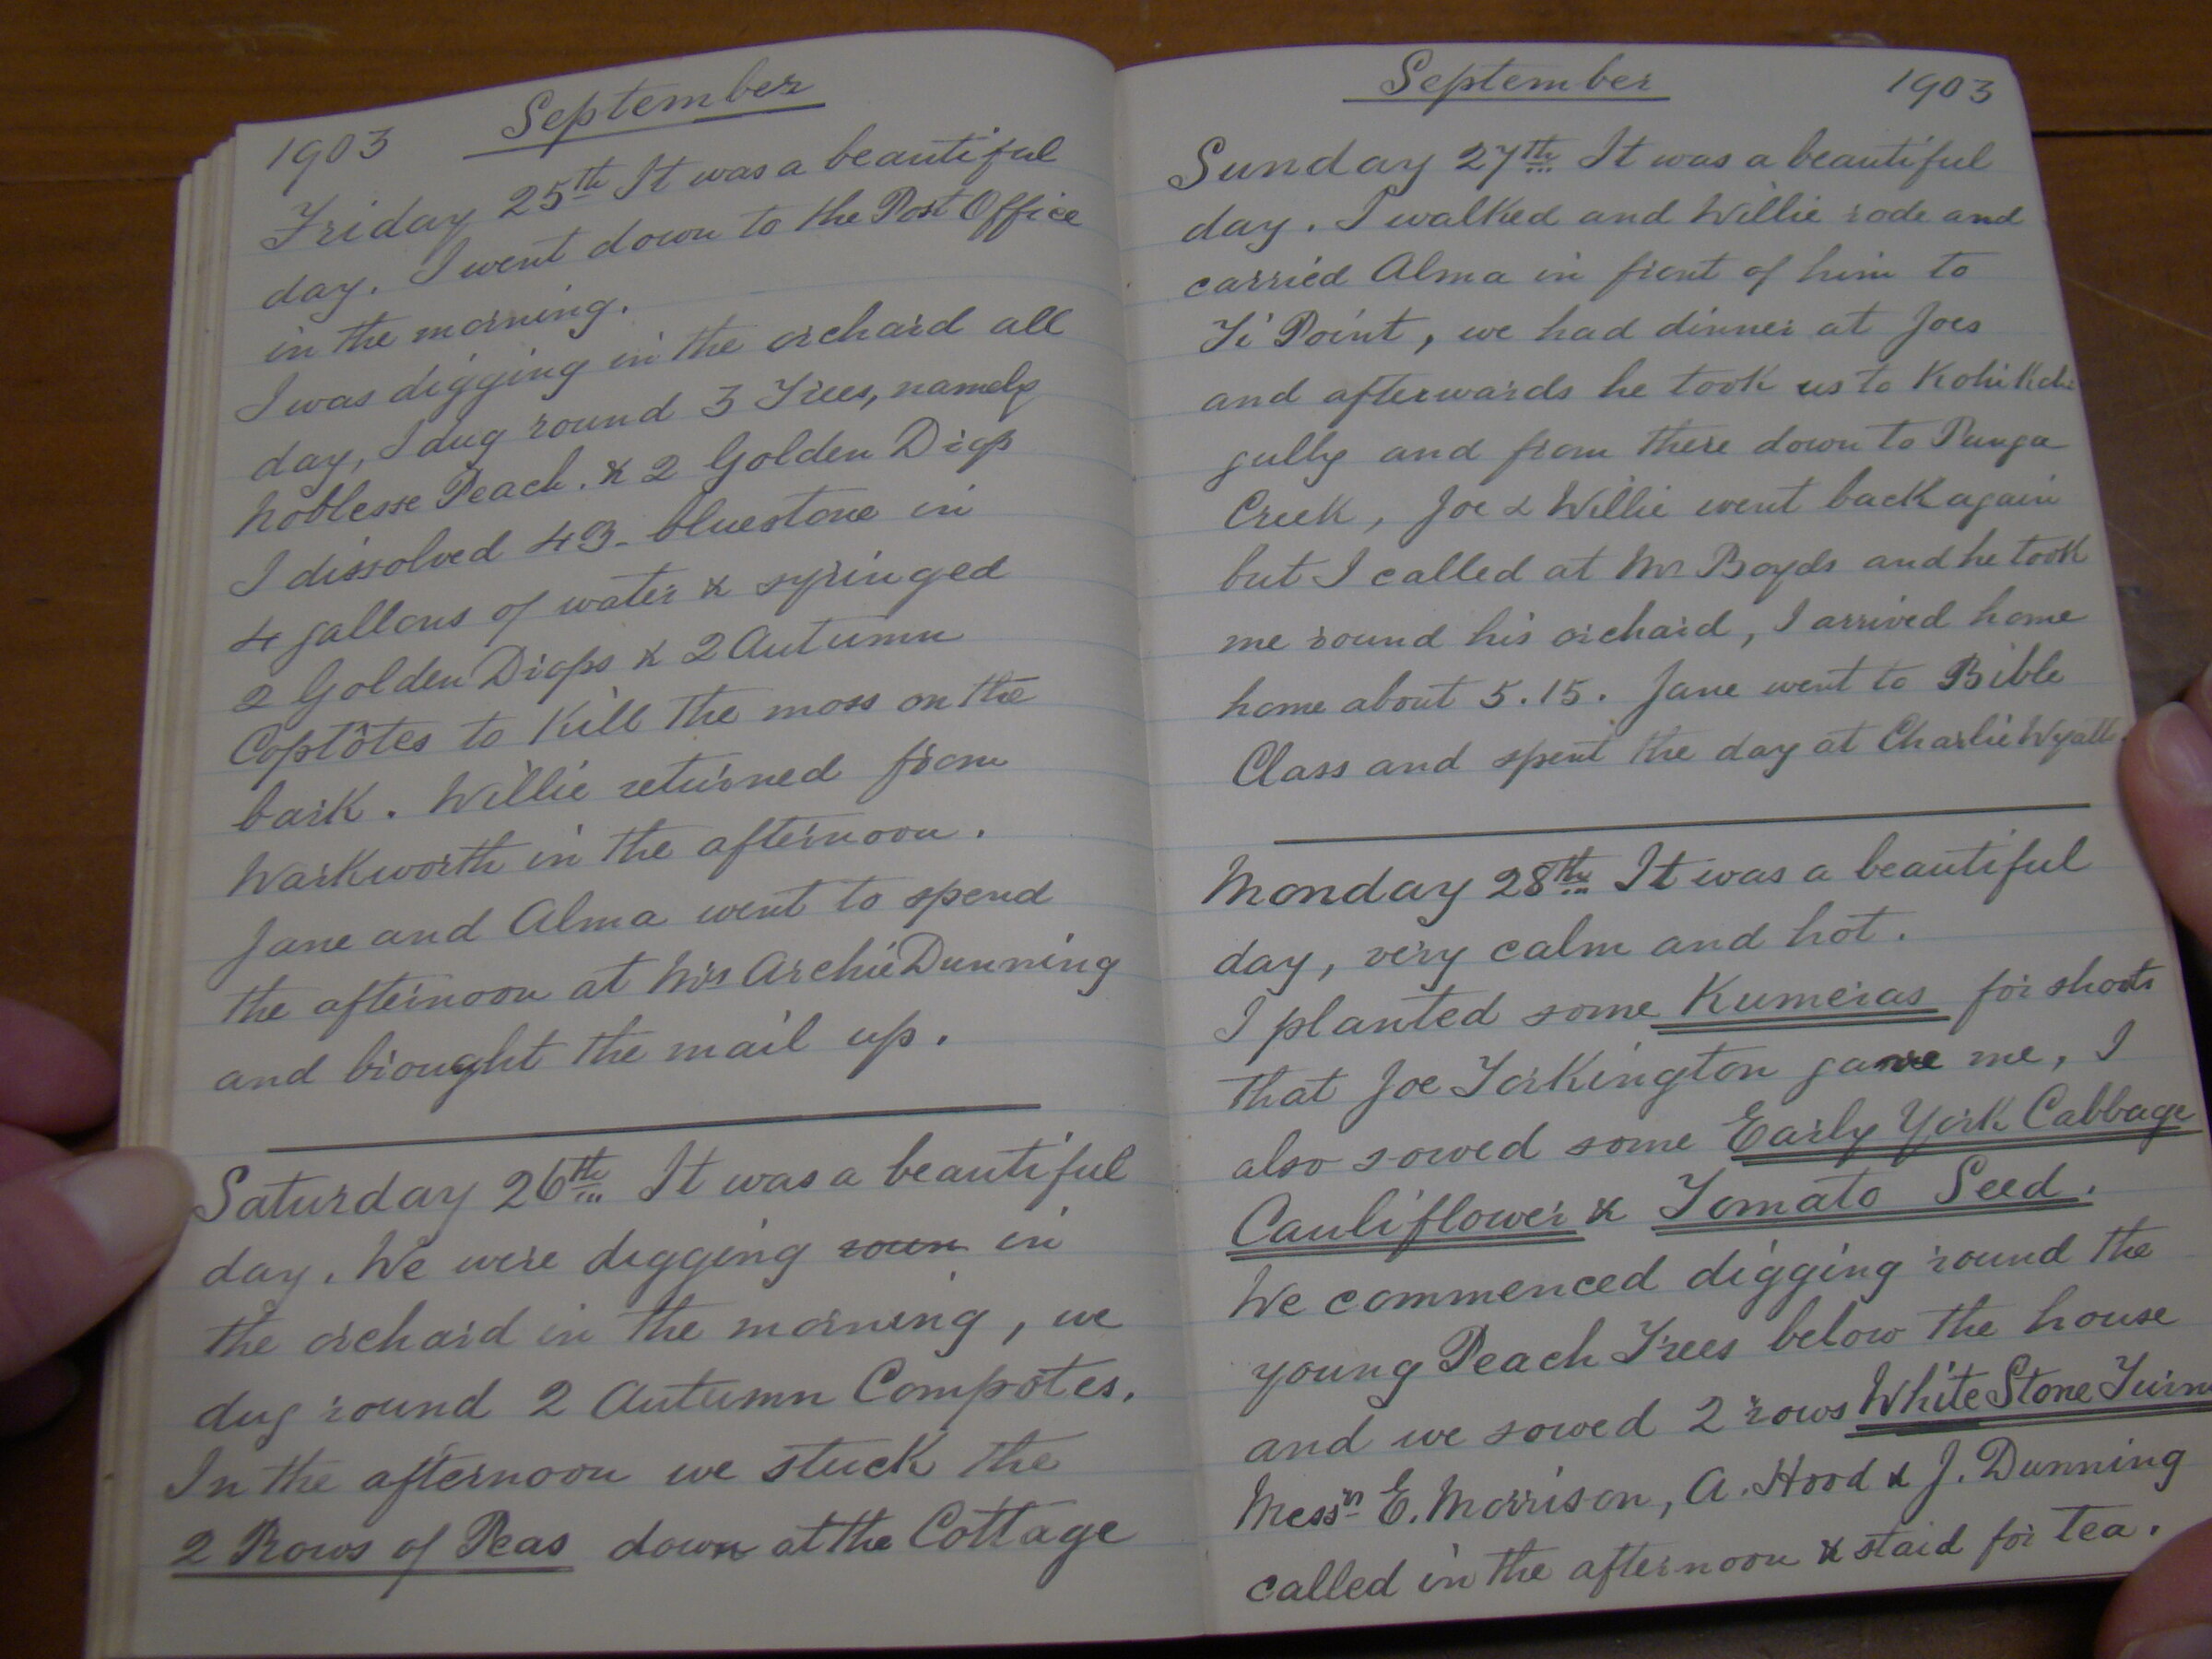 1903 September
Friday 25th It was a beautiful
day. I went down to the Post Office
in the morning.
I was digging in the orchard all
day, I dug round 3 Trees, namely
Noblesse Peach. & 2 Golden Drops
I dissolved bluestone in
4 gallons of water & syringed
2 Golden Drops & 2 Autumn
Coptôtes to Kill the moss on the
bark. Willie returned from
Warkworth in the afternoon.
Jane and Alma went to spend
the afternoon at Mrs Archie Dunning
and brought the mail up.
Saturday 26th It was a beautiful
day. We were digging roun in
the orchard in the morning, we
dug round 2 Autumn Compôtes.
In the afternoon we stuck the
2 Rows of Peas down at the Cottage
September 1903
Sunday 27th It was a beautiful
day. I walked and Willie rode and
carried Alma in front of him to
Ti Point, we had dinner at Joes
and afterwards he took us to
gully and from there down to Punga
Creek, Joe & Willie went back again
but I called at Mr Boyds and he took
me round his orchard, I arrived home
home about 5.15. Jane went to Bible
Class and spent the day at Charlie Wyatt
Monday 28th It was a beautiful
day, very calm and hot.
I planted some Kumeras for shoots
that Joe Torkington gave me, I
also sowed some Early York Cabbage
Cauliflower & Tomato Seed.
We commenced digging round the
young Peach Trees below the house
and we sowed 2 rows White Stone Turn
Messrs E. Morrison, A. Hood & J. Dunning
called in the afternoon & staid for tea.